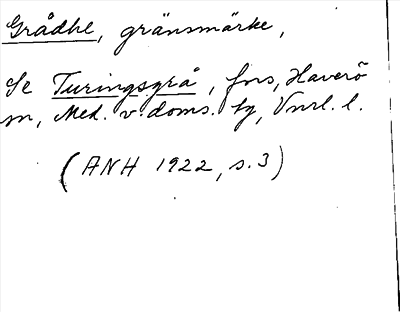 Grådhe, gränsmärke,
Se Turingsgrå, fns, Haverö
sn, Med. v. doms. tg, Vnrl. l.
(ANH 1922, s. 3)